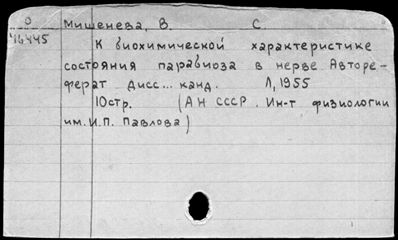 О Мишенева, В. С
46445
К биохимической характеристике
состояния парабиоза в нерве Авторе-
ферат дисс... канд. Л, 1955
10стр. (АН СССР. Ин-т физиологии
им. И.П. Павлова)